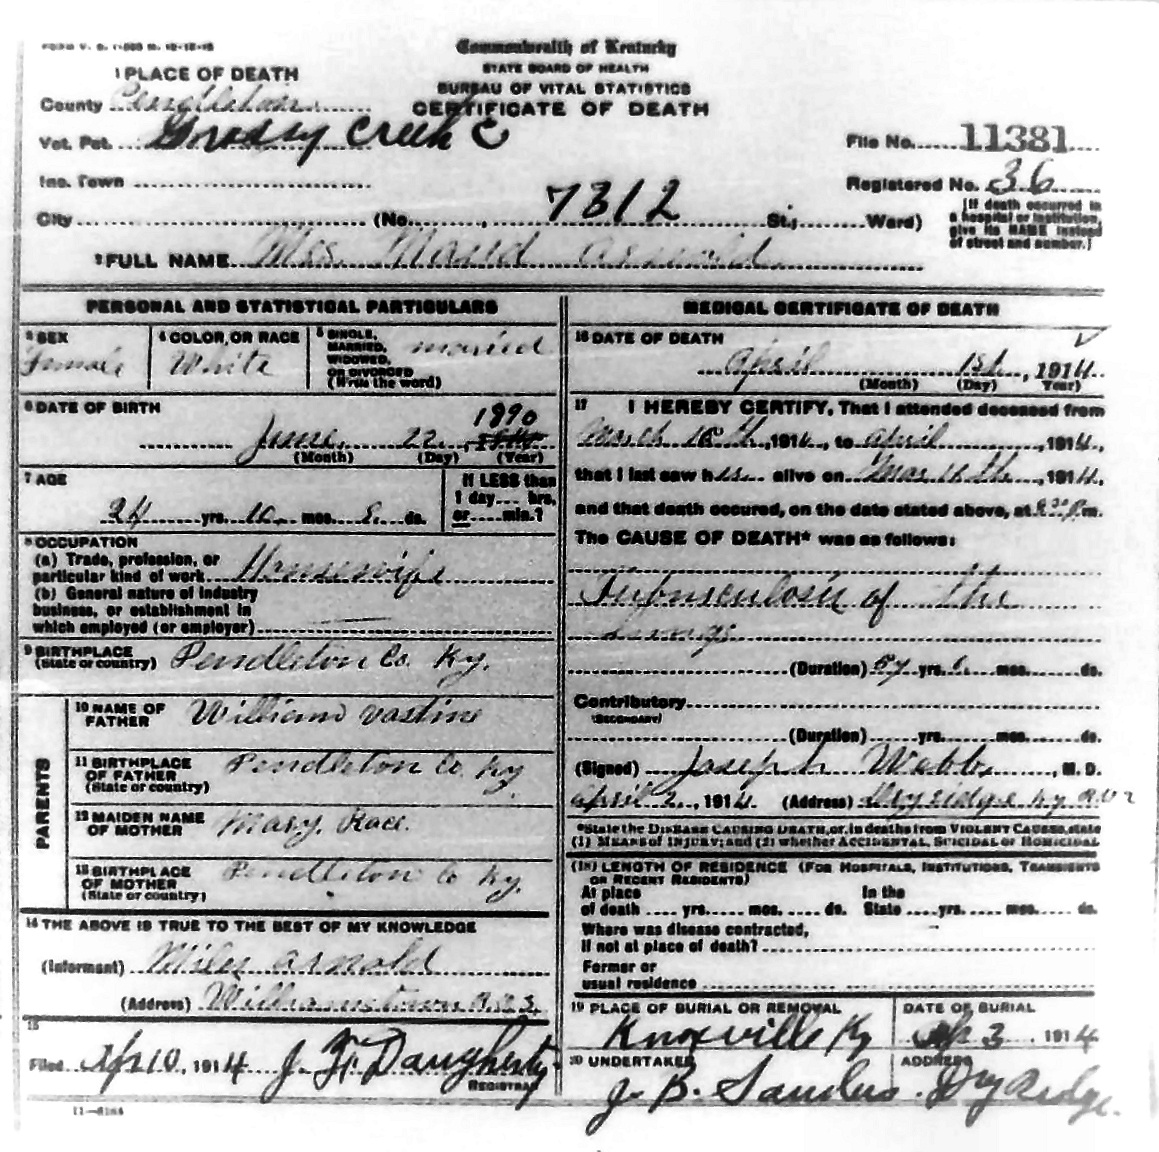 FORM V. S. 1-
Commonwealth of Kentucky
STATE BOARD OF HEALTH
BUREAU OF VITAL STATISTICS
CERTIFICATE OF DEATH
1 PLACE OF DEATH
County Pendleton
Vot. Pct. Grassy Creek C
Inc. Town
City (No. 7312 St.; Ward)
File No. 11381
Registered No. 36
[If death occurred in
a hospital or institution,
give its NAME instead
of street and number.]
2 FULL NAME Mrs. Maud Arnold
PERSONAL AND STATISTICAL PARTICULARS
3 SEX
Female
4 COLOR OR RACE
White
5 SINGLE,
MARRIED,
WIDOWED,
OR DIVORCED
(Write the word)
married
6 DATE OF BIRTH
June 22, 1890
(Month) (Day) (Year)
7 AGE
24 yrs. 10 mos. 8 ds.
If LESS than
1 day.... hrs.
or.....min.?
8 OCCUPATION
(a) Trade, profession, or
particular kind of work Housewife
(b) General nature of industry
business, or establishment in
which employed (or employer)
9 BIRTHPLACE
(State or country) Pendleton Co. Ky.
PARENTS
10 NAME OF
FATHER William Vastine
11 BIRTHPLACE
OF FATHER
(State or country) Pendleton Co Ky.
12 MAIDEN NAME
OF MOTHER Mary Race.
13 BIRTHPLACE
OF MOTHER
(State or country) Pendleton Co Ky.
14 THE ABOVE IS TRUE TO THE BEST OF MY KNOWLEDGE
(Informant) Miles Arnold
(Address) Williamstown
15
Filed Apr 10, 1914 J. H. Daugherty
REGISTRAR
11-
MEDICAL CERTIFICATE OF DEATH
16 DATE OF DEATH
April 1st, 1914
(Month) (Day) Year)
17 I HEREBY CERTIFY, That I attended deceased from
March 18th, 1914, to April, 1914,
that I last saw her alive on Mar 18th, 1914,
and that death occured, on the date stated above, at m.
The CAUSE OF DEATH* was as follows:
Turbuculosis of the
Lungs
(Duration) yrs. mos. ds.
Contributory
(SECONDARY)
(Duration) yrs. mos. ds.
(Signed) Joseph Webb, M. D.
April 2, 1914 (Address) Dryridge Ky
*State the DISEASE CAUSING DEATH, or, in deaths from VIOLENT CAUSES, state
(1) MEANS OF INJURY; and (2) whether ACCIDENTAL, SUICIDAL or HOMICIDAL
(18) LENGTH OF RESIDENCE (FOR HOSPITALS, INSTITUTIONS, TRANSIENTS
OR RECENT RESIDENTS)
At place In the
of death .... yrs..... mos. .... ds. State ....yrs.... mos.... ds.
Where was disease contracted,
if not at place of death?
Former or
usual residence
19 PLACE OF BURIAL OR REMOVAL
Knoxville Ky
DATE OF BURIAL
Ap 3, 1914
20 UNDERTAKER
J. B. Sanders
ADDRESS
Dry Ridge.